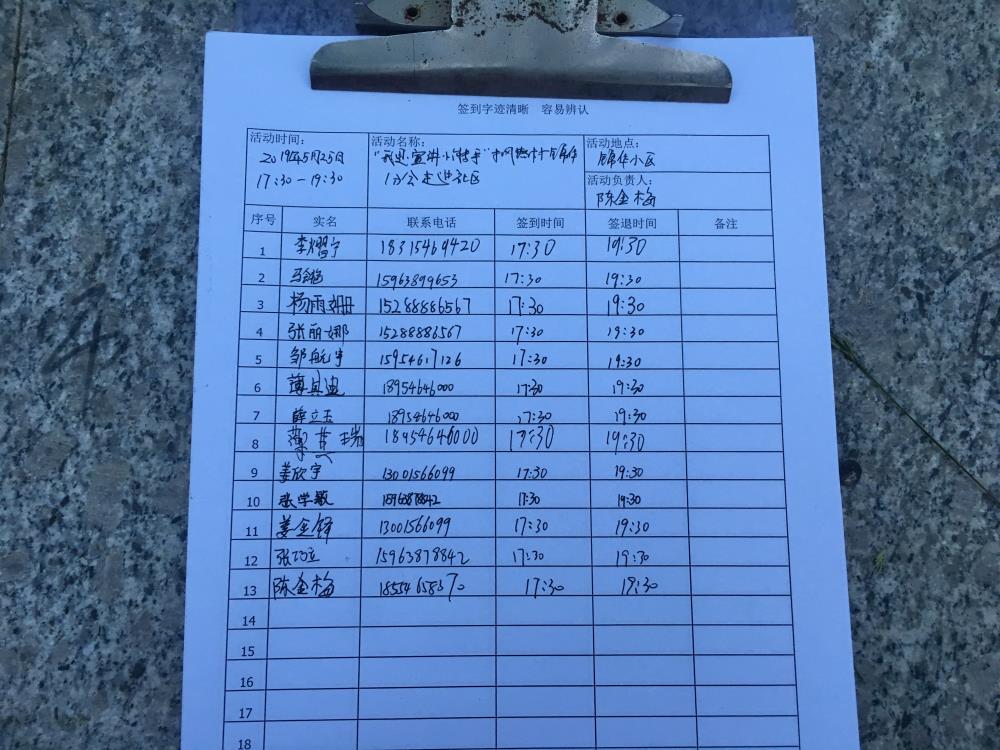 签到字迹清晰 容易辨认
活动时间： 活动名称： 活动地点：
2019年5月25日 "我是宣讲小 锦华小区
17:30-19:30 走进社区 活动负责人：
陈金梅
序号 实名 联系电话 签到时间 签退时间 备注
1 李熠宁 18315469420 17:30 19:30
2 15963899653 17:30 19:30
3 杨雨姗 15288886567 17:30 19:30
4 张丽娜 15288886567 17:30 19:30
5 邹航宇 15954617126 17:30 19:30
6 薄其迪 18954646000 17:30 19:30
7 薛立玉 18954646000 17:30 19:30
8 薄其瑞 18954646000 17:30 19:30
9 姜欣宇 13001566099 17:30 19:30
10 张学颖 17:30 19:30
11 姜金铎 13001566099 17:30 19:30
12 张巧立 15963878842 17:30 19:30
13 陈金梅 18554658370 17:30 19:30
14
15
16
17
18